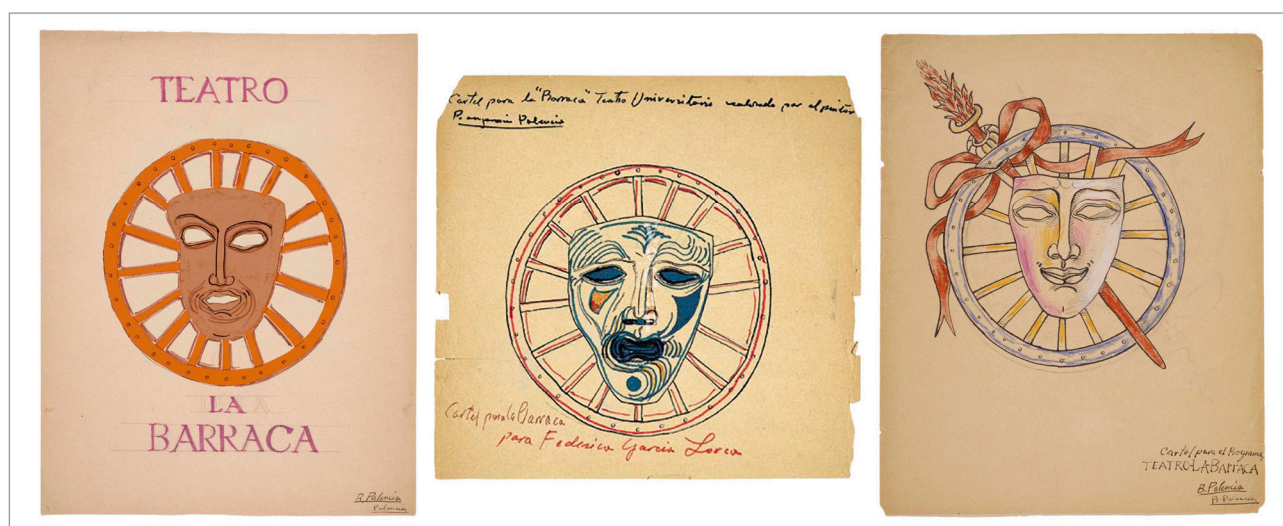 TEATRO
LA
BARRACA
B. Palencia
Palencia
Cartel para la "Barraca" Teatro Universitario realizado por el pintor
Benjamin Palencia
Cartel para la Barraca
para Federico García Lorca
Cartel para el Programa
TEATRO-LA BARRACA
B. Palencia
B. Palencia